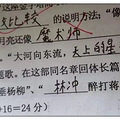 天上比较 的说明方法,“像
月亮还像 魔术师
,“大河向东流,天上的星
题歌。在这部同名章回体长篇
垂杨柳”,“ 林冲 醉打蒋
+16=24分)